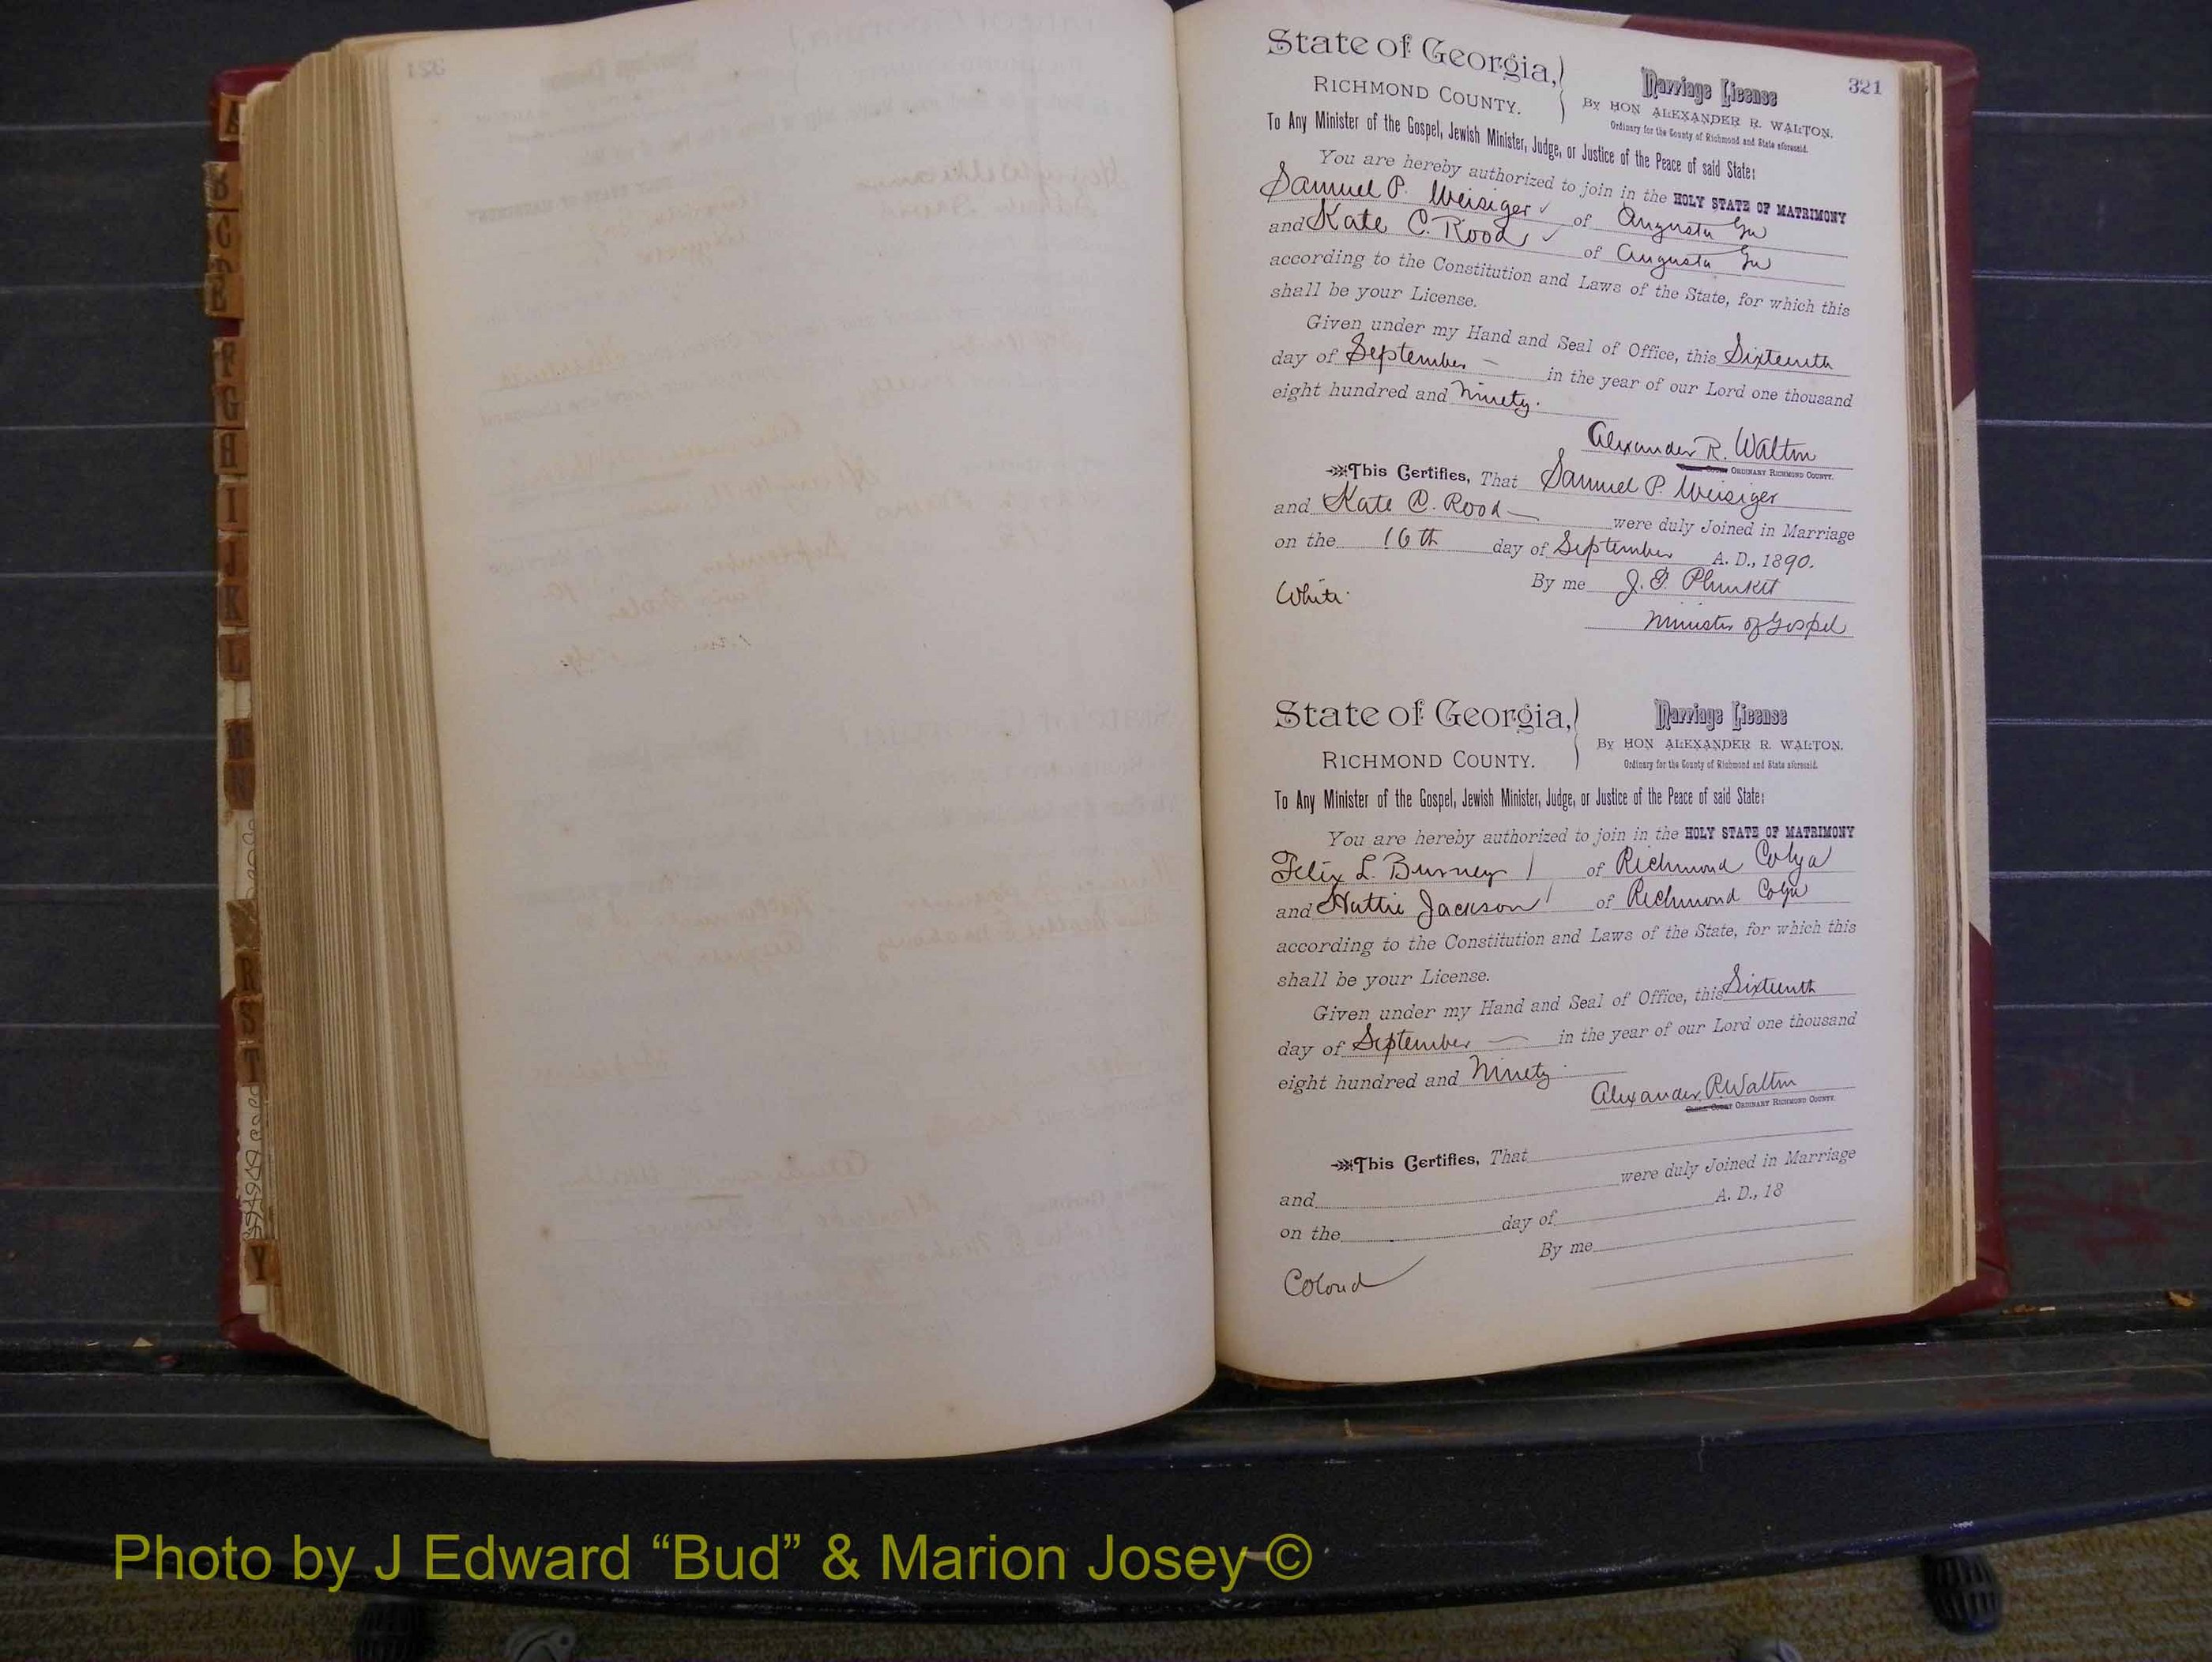 321
State of Georgia,
RICHMOND COUNTY.
Marriage License
By HON ALEXANDER R. WALTON.
Ordinary for the County of Richmond and State aforesaid.
To Any Minister of the Gospel, Jewish Minister, Judge, or Justice of the Peace of said State:
You are hereby authorized to join in the HOLY STATE OF MATRIMONY
Samuel P. Weisiger of Augusta Ga
and Kate C. Rood of Augusta Ga
according to the Constitution and Laws of the State, for which this
shall be your License.
Given under my Hand and Seal of Office, this Sixteenth
day of September in the year of our Lord one thousand
eight hundred and Ninety.
Alexander R. Walton
ORDINARY RICHMOND COUNTY.
This Certifies, That Samuel P. Weisiger
and Kate C. Rood were duly Joined in Marriage
on the 16th day of September A. D., 1890.
By me J. T. Plunket
White
Minister of Gospel
State of Georgia,
RICHMOND COUNTY.
Marriage License
By HON ALEXANDER R. WALTON.
Ordinary for the County of Richmond and State aforesaid.
To Any Minister of the Gospel, Jewish Minister, Judge, or Justice of the Peace of said State:
You are hereby authorized to join in the HOLY STATE OF MATRIMONY
Felix L. Burney of Richmond Co Ga
and Hattie Jackson of Richmond Co Ga
according to the Constitution and Laws of the State, for which this
shall be your License.
Given under my Hand and Seal of Office, this Sixteenth
day of September in the year of our Lord one thousand
eight hundred and Ninety
Alexander R. Walton
ORDINARY RICHMOND COUNTY.
This Certifies, That
and were duly Joined in Marriage
on the day of A. D., 18
By me
Colord
B
C
D
E
F
G
H
I
J
K
L
M
N
R
S
T
Y
Photo by J Edward “Bud” & Marion Josey ©